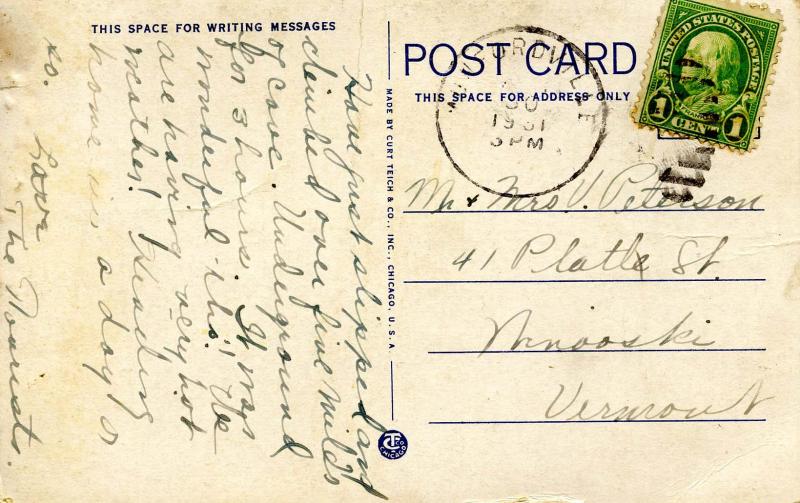 THIS SPACE FOR WRITING MESSAGES
Have just slipped and
climbed over five miles
of cave. Underground
for 3 hours. It was
wonderful tho'! We
are having very hot
weather! Heading
home in a day or
so. Love
The Tourists.
MADE BY CURT TEICH & CO., INC., CHICAGO, U.S.A.
CT CO
CHICAGO
POST CARD
THIS SPACE FOR ADDRESS ONLY
30
1931
3 PM
UNITED STATES POSTAGE
FRANKLIN
1 CENT 1
Mr & Mrs V. Peterson
41 Platte St.
Winooski
Vermont